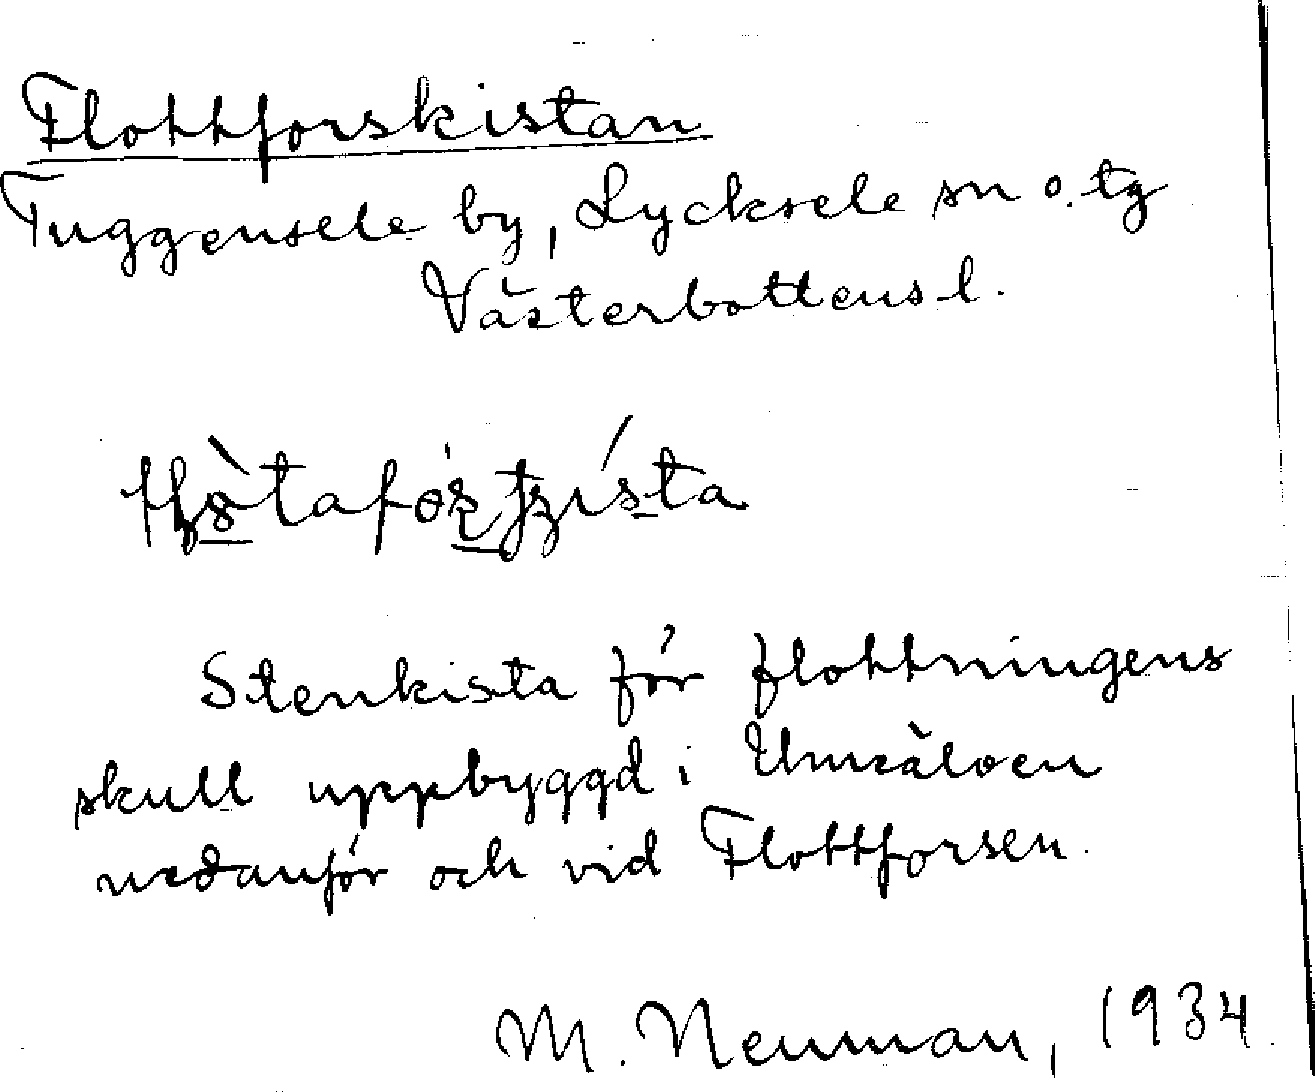 Flottforskistan
Tuggensele by, Lycksele sn o. tg
Västerbottens l.
Stenkista för flottningens
skull uppbyggd i Umeälven
nedanför och vid Flottforsen.
M. Neuman, 1934